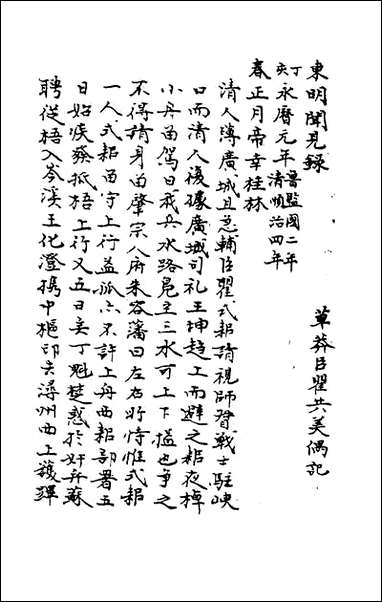 東明聞見錄
草莽臣瞿共美偶記
丁亥永曆元年魯監國二年清順治四年
春正月帝幸桂林
清人薄廣城且急輔臣瞿式耜請視師督戰士駐峽
口而清人復據廣城司礼王坤趋上而避之耜夜棹
小舟留駕曰我兵水路先至三水可上下搤也爭之
不得請身留肇宗人府朱容藩曰左右將恃惟式耜
一人式耜留守上行益孤亦不許上舟西耜部署五
日始疾發抵梧上行又五日矣丁魁楚惑於奸弁蘇
聘從梧入岑溪王化澄携中樞印去潯州西上護蹕